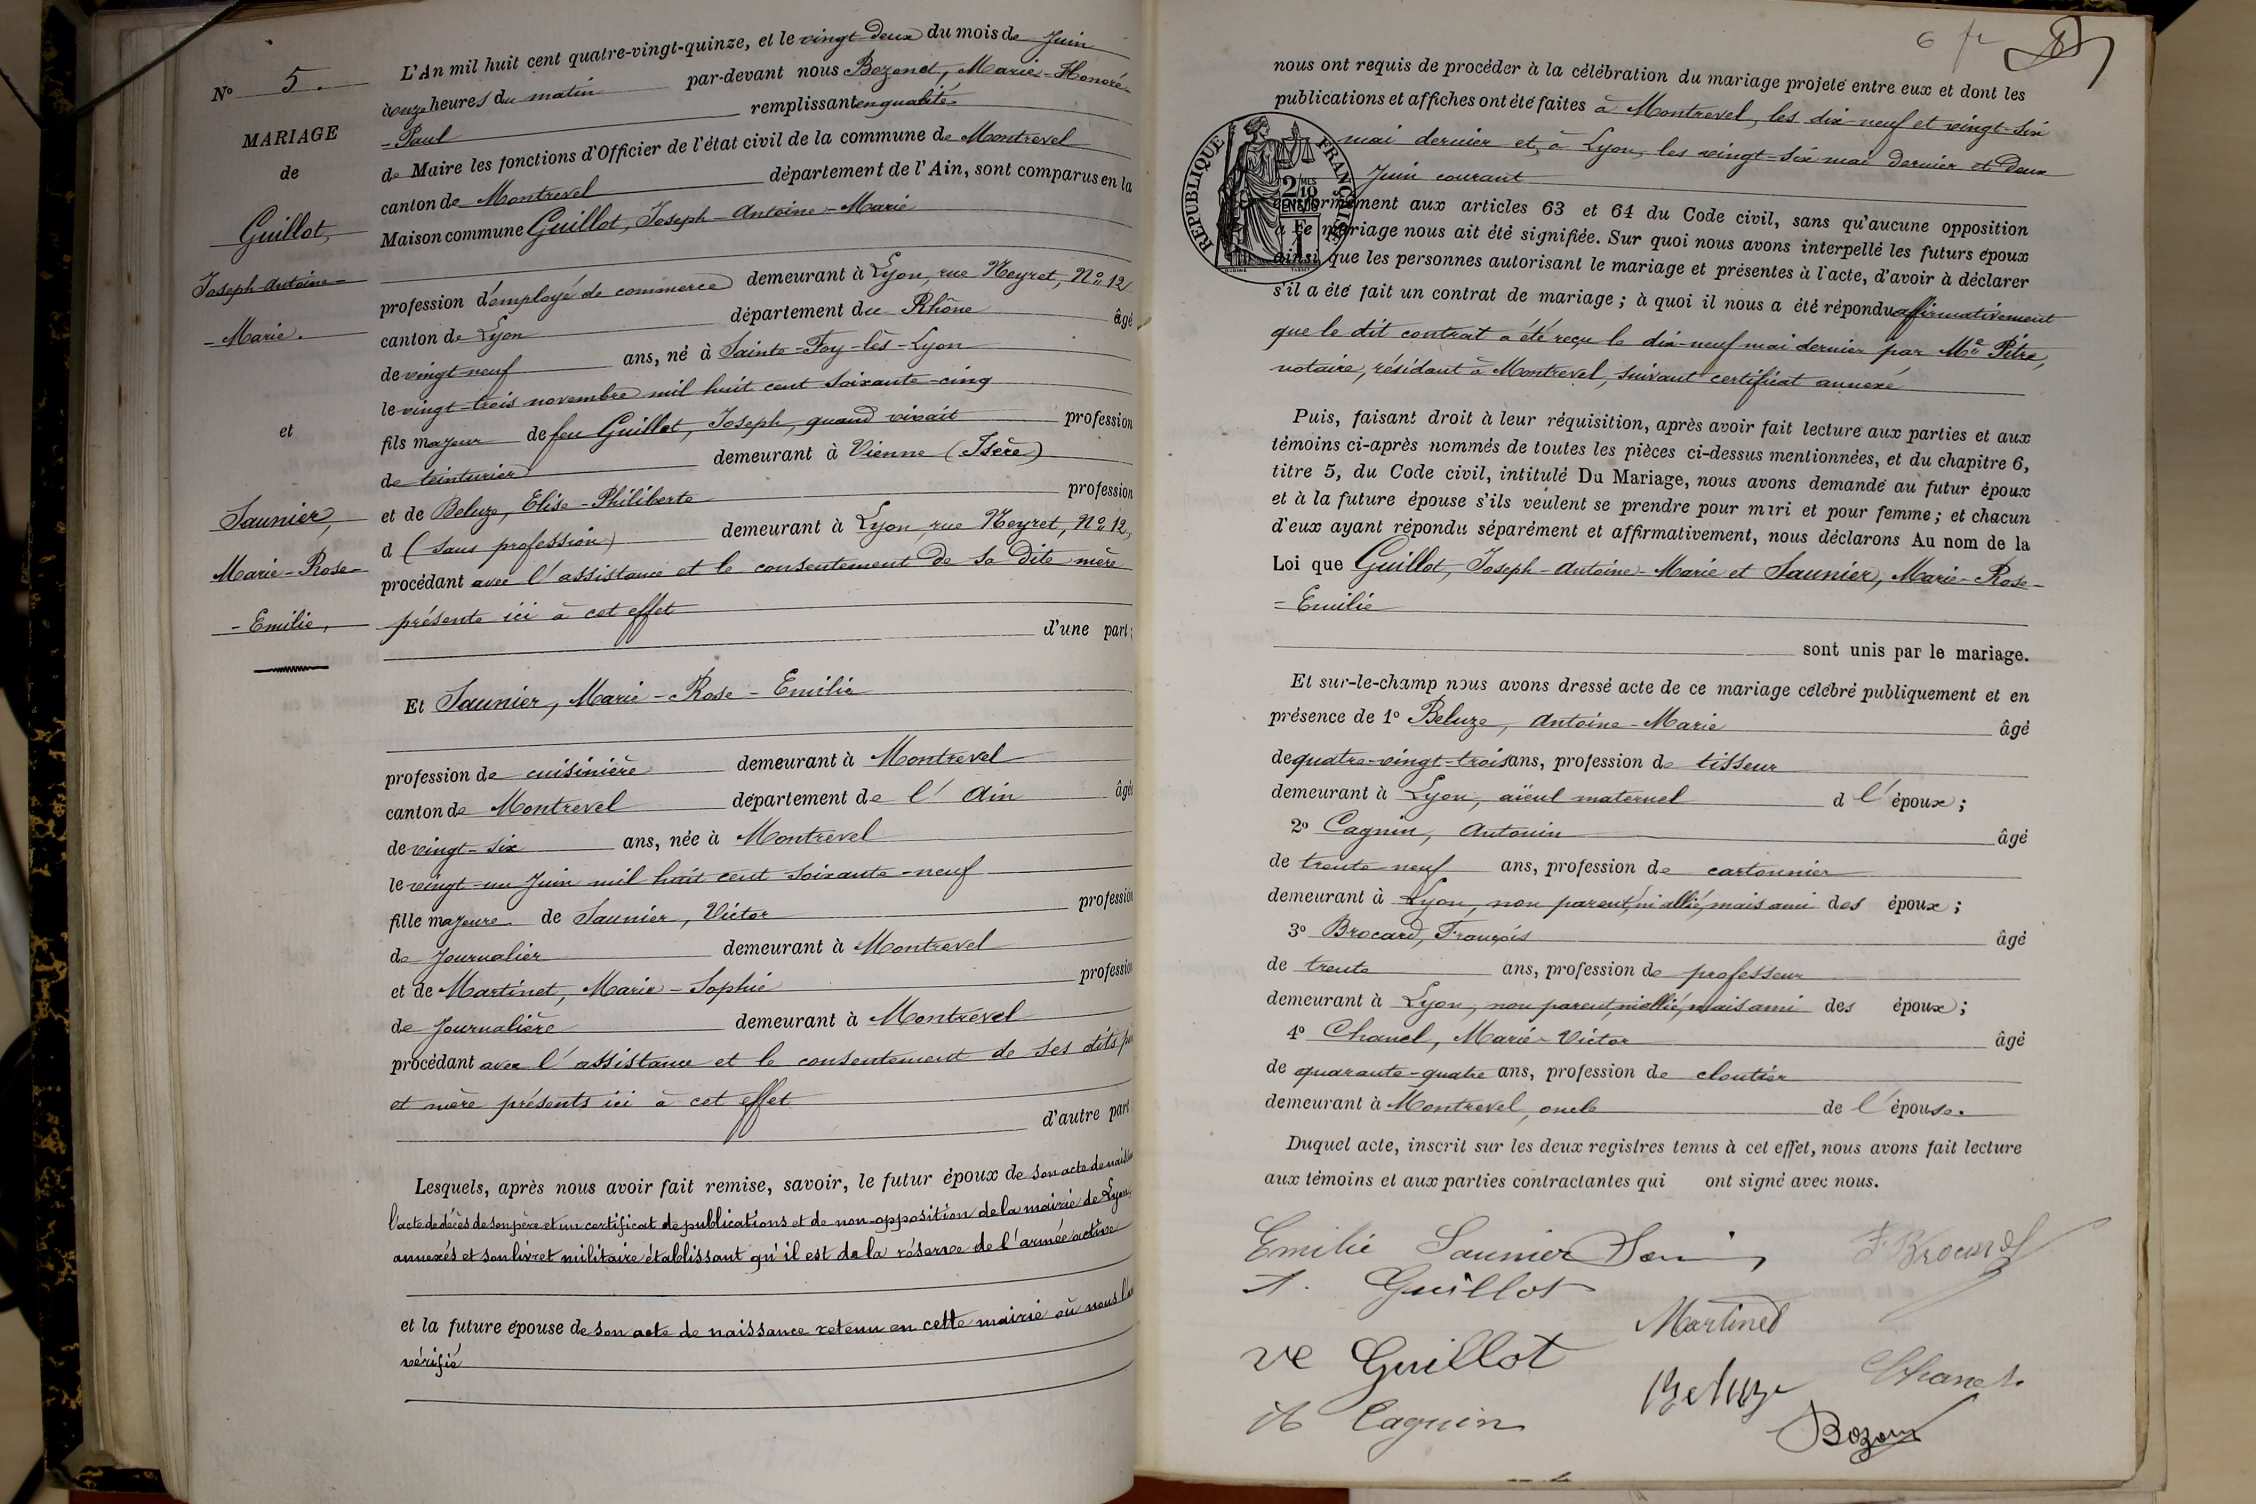 N° 5.
MARIAGE
de
Guillot,
Joseph-Antoine-
-Marie.
et
Saunier,
Marie-Rose-
-Emilie,
L'An mil huit cent quatre-vingt-quinze, et le vingt-deux du mois de Juin
à onze heures du matin par-devant nous Bozonet, Marie-Honoré-
-Paul remplissant en qualité
de Maire les fonctions d'Officier de l'état civil de la commune de Montrevel
canton de Montrevel département de l'Ain, sont comparus en la
Maison commune Guillot, Joseph-Antoine-Marie
profession d'employé de commerce demeurant à Lyon, rue Neyret, N° 12
canton de Lyon département du Rhône âgé
de vingt-neuf ans, né à Sainte-Foy-lès-Lyon
le vingt-trois novembre mil huit cent soixante-cinq
fils majeur de feu Guillot, Joseph, quand vivait profession
de teinturier demeurant à Vienne (Isère)
et de Beluze, Elise-Philiberte profession
d (sans profession) demeurant à Lyon, rue Neyret, N° 12,
procédant avec l'assistance et le consentement de sa dite mère
présente ici à cet effet
d'une part;
Et Saunier, Marie-Rose-Emilie
profession de cuisinière demeurant à Montrevel
canton de Montrevel département de l'Ain âgée
de vingt-six ans, née à Montrevel
le vingt-un Juin mil huit cent soixante-neuf
fille majeure de Saunier, Victor profession
de Journalier demeurant à Montrevel
et de Martinet, Marie-Sophie profession
de Journalière demeurant à Montrevel
procédant avec l'assistance et le consentement de ses dits
et mère présents ici à cet effet
d'autre part
Lesquels, après nous avoir fait remise, savoir, le futur époux de son acte de
l'acte de décès de son père et un certificat de publications et de non-opposition de la mairie de Lyon,
annexés et son livret militaire établissant qu'il est de la réserve de l'armée active
et la future épouse de son acte de naissance retenu en cette mairie où nous
vérifié
6 fr
nous ont requis de procéder à la célébration du mariage projeté entre eux et dont les
publications et affiches ont été faites à Montrevel, les dix-neuf et vingt-six
mai dernier et, à Lyon, les vingt-six mai dernier et deux
Juin courant
RÉPUBLIQUE FRANÇAISE
2 MES 10
EN SUS
1 F
conformément aux articles 63 et 64 du Code civil, sans qu'aucune opposition
à ce mariage nous ait été signifiée. Sur quoi nous avons interpellé les futurs époux
ainsi que les personnes autorisant le mariage et présentes à l'acte, d'avoir à déclarer
s'il a été fait un contrat de mariage ; à quoi il nous a été répondu affirmativement
que le dit contrat a été reçu le dix-neuf mai dernier par Me Pitre,
notaire, résidant à Montrevel, suivant certificat annexé
Puis, faisant droit à leur réquisition, après avoir fait lecture aux parties et aux
témoins ci-après nommés de toutes les pièces ci-dessus mentionnées, et du chapitre 6,
titre 5, du Code civil, intitulé Du Mariage, nous avons demandé au futur époux
et à la future épouse s'ils veulent se prendre pour mari et pour femme ; et chacun
d'eux ayant répondu séparément et affirmativement, nous déclarons Au nom de la
Loi que Guillot, Joseph-Antoine-Marie et Saunier, Marie-Rose-
-Emilie
sont unis par le mariage.
Et sur-le-champ nous avons dressé acte de ce mariage célébré publiquement et en
présence de 1° Beluze, Antoine-Marie âgé
de quatre-vingt-trois ans, profession de tisseur
demeurant à Lyon, aïeul maternel d l'époux ;
2° Cagnin, Antonin âgé
de trente-neuf ans, profession de cartonnier
demeurant à Lyon, non parent, ni allié, mais ami des époux ;
3° Brocard, François âgé
de trente ans, profession de professeur
demeurant à Lyon, non parent, ni allié, mais ami des époux ;
4° Chanel, Marie-Victor âgé
de quarante-quatre ans, profession de cloutier
demeurant à Montrevel, oncle de l'épouse.
Duquel acte, inscrit sur les deux registres tenus à cet effet, nous avons fait lecture
aux témoins et aux parties contractantes qui ont signé avec nous.
Emilie Saunier F. Brocard
A. Guillot
Martinet
ve Guillot
Beluze Chanel
A Cagnin
Bozonet